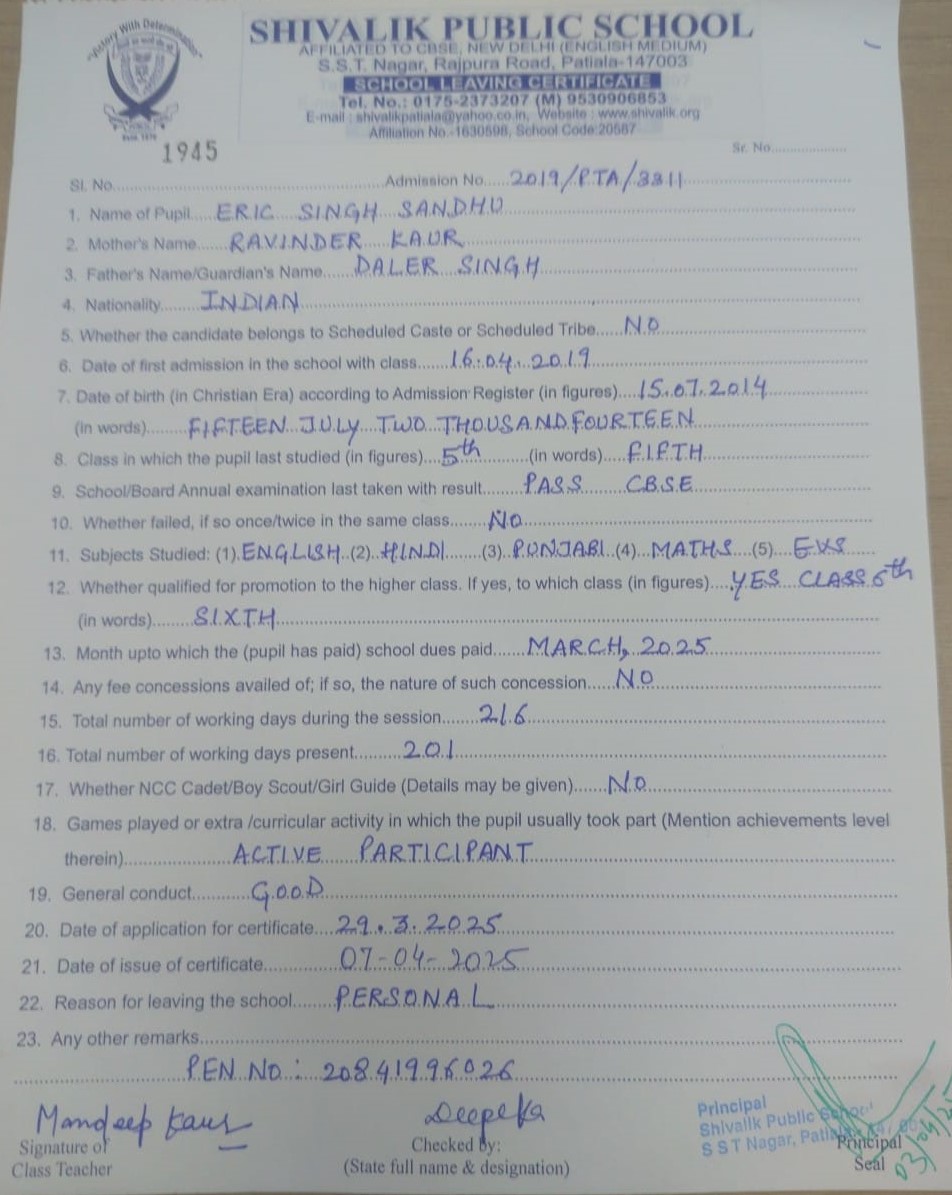 "Victory With Determination"
SHIVALIK PUBLIC SCHOOL
AFFILIATED TO CBSE, NEW DELHI (ENGLISH MEDIUM)
S.S.T. Nagar, Rajpura Road, Patiala-147003
SCHOOL LEAVING CERTIFICATE
Tel. No.: 0175-2373207 (M) 9530906853
E-mail : shivalikpatiala@yahoo.co.in, Website : www.shivalik.org
Affiliation No.-1630598, School Code:20587
1945
Sr. No.
Sl. No. Admission No. 2019/PTA/3311
1. Name of Pupil ERIC SINGH SANDHU
2. Mother's Name RAVINDER KAUR
3. Father's Name/Guardian's Name DALER SINGH
4. Nationality INDIAN
5. Whether the candidate belongs to Scheduled Caste or Scheduled Tribe NO
6. Date of first admission in the school with class 16.04.2019
7. Date of birth (in Christian Era) according to Admission Register (in figures) 15.07.2014
(in words) FIFTEEN JULY TWO THOUSAND FOURTEEN
8. Class in which the pupil last studied (in figures) 5th (in words) FIFTH
9. School/Board Annual examination last taken with result PASS CBSE
10. Whether failed, if so once/twice in the same class NO
11. Subjects Studied: (1) ENGLISH (2) HINDI (3) PUNJABI (4) MATHS (5) EVS
12. Whether qualified for promotion to the higher class. If yes, to which class (in figures) YES CLASS 6th
(in words) SIXTH
13. Month upto which the (pupil has paid) school dues paid MARCH, 2025
14. Any fee concessions availed of; if so, the nature of such concession NO
15. Total number of working days during the session 216
16. Total number of working days present 201
17. Whether NCC Cadet/Boy Scout/Girl Guide (Details may be given) NO
18. Games played or extra /curricular activity in which the pupil usually took part (Mention achievements level
therein) ACTIVE PARTICIPANT
19. General conduct GOOD
20. Date of application for certificate 29.3.2025
21. Date of issue of certificate 07-04-2025
22. Reason for leaving the school PERSONAL
23. Any other remarks
PEN NO: 20841996026
Mandeep Kaur
Signature of
Class Teacher
Deepeka
Checked By:
(State full name & designation)
Principal
Shivalik Public School
S S T Nagar,
Principal
Seal